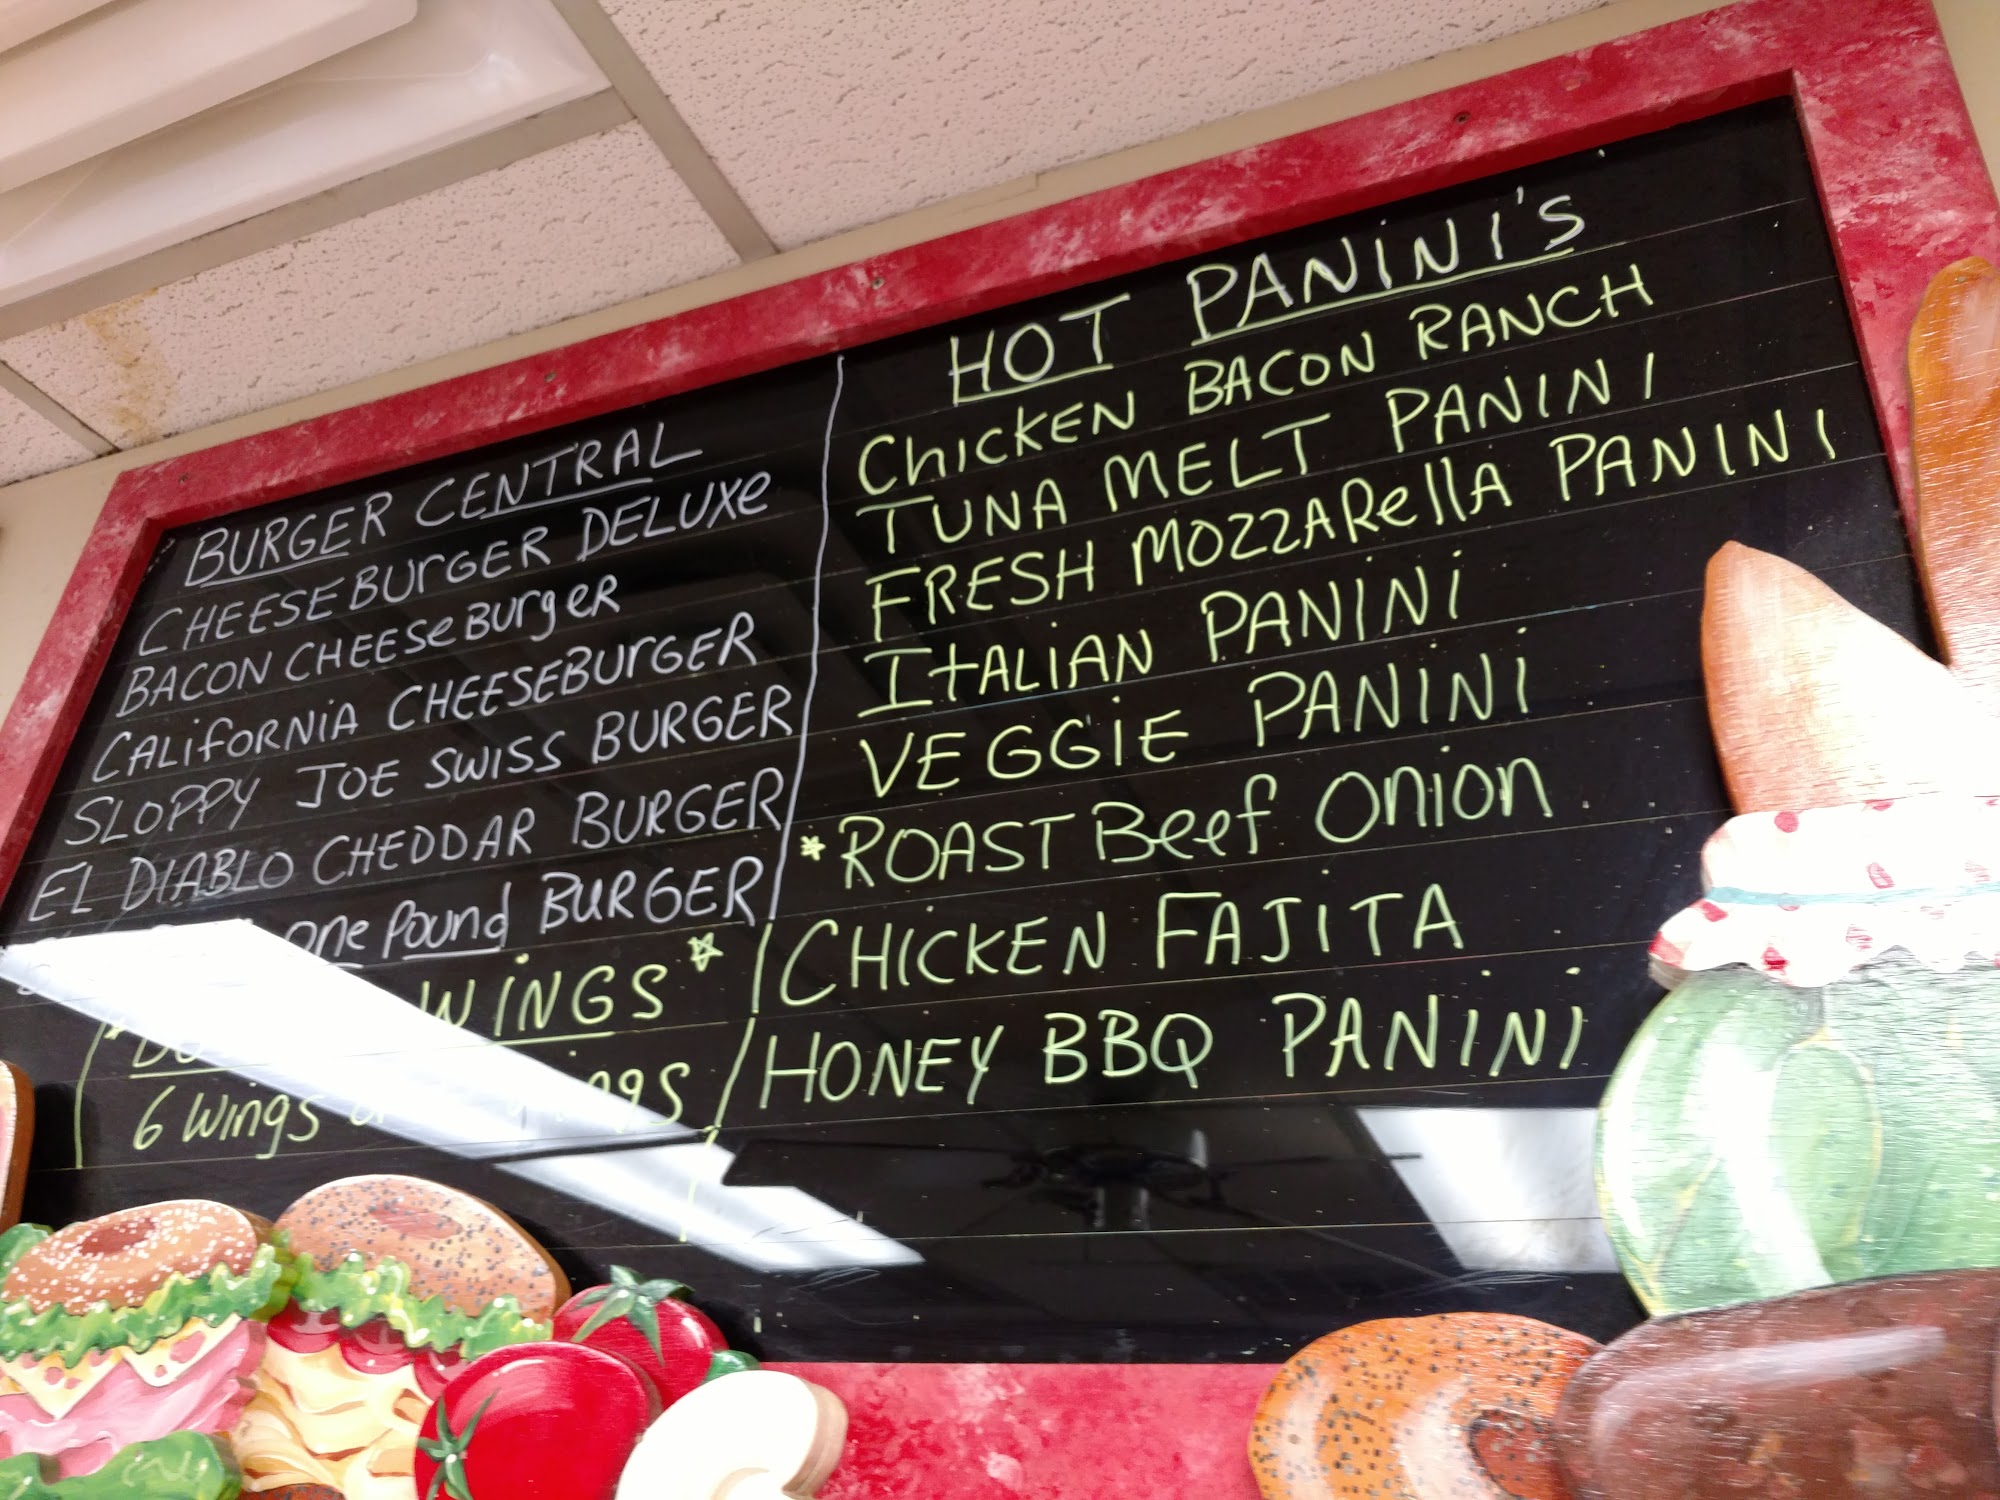 BURGER CENTRAL
CHEESEBURGER DELUXe
BACON CHEESeBurgeR
CALiFORNiA CHEESEBURGER
SLOPPY JOE SWISS BURGER
EL DIABLO CHEDDAR BURGER
one Pound BURGER
WiNGS
6 wings
HOT PANiNi'S
ChicKEN BACON RANCH
TUNA MELT PANINI
FRESH MOZZARellA PANINI
ItALIAN PANINi
VEGGiE PANINi
*ROAST Beef Onion
CHICKEN FAJITA
HONEY BBQ PANiNi